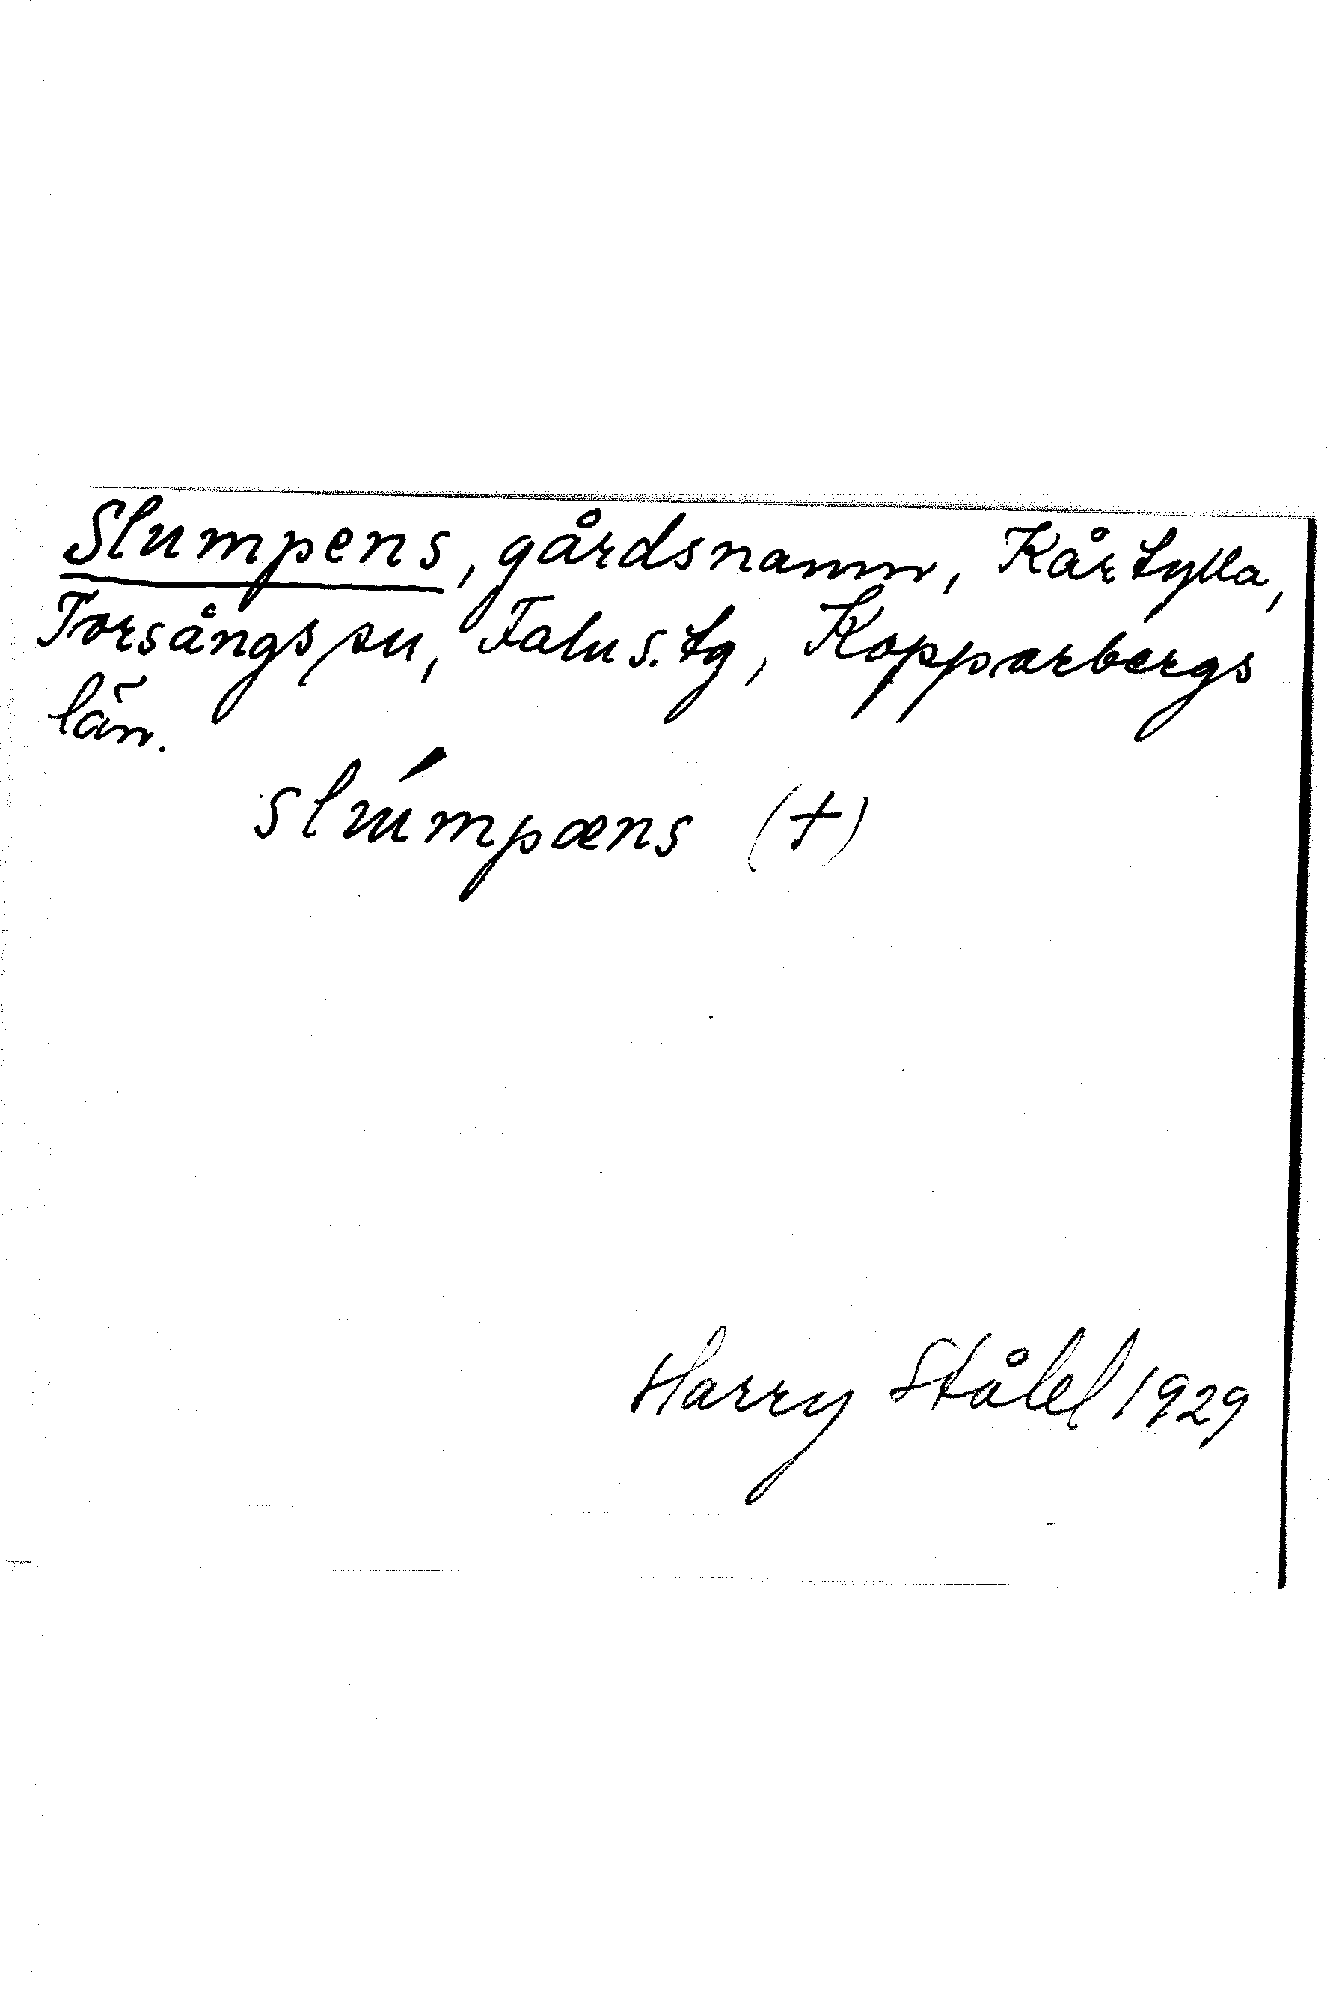 Slumpens, gårdsnamn, Kårtylla,
Torsångs sn, Falu s. tg, Kopparbergs
län.
slúmpæns (+)
Harry Ståhl 1929